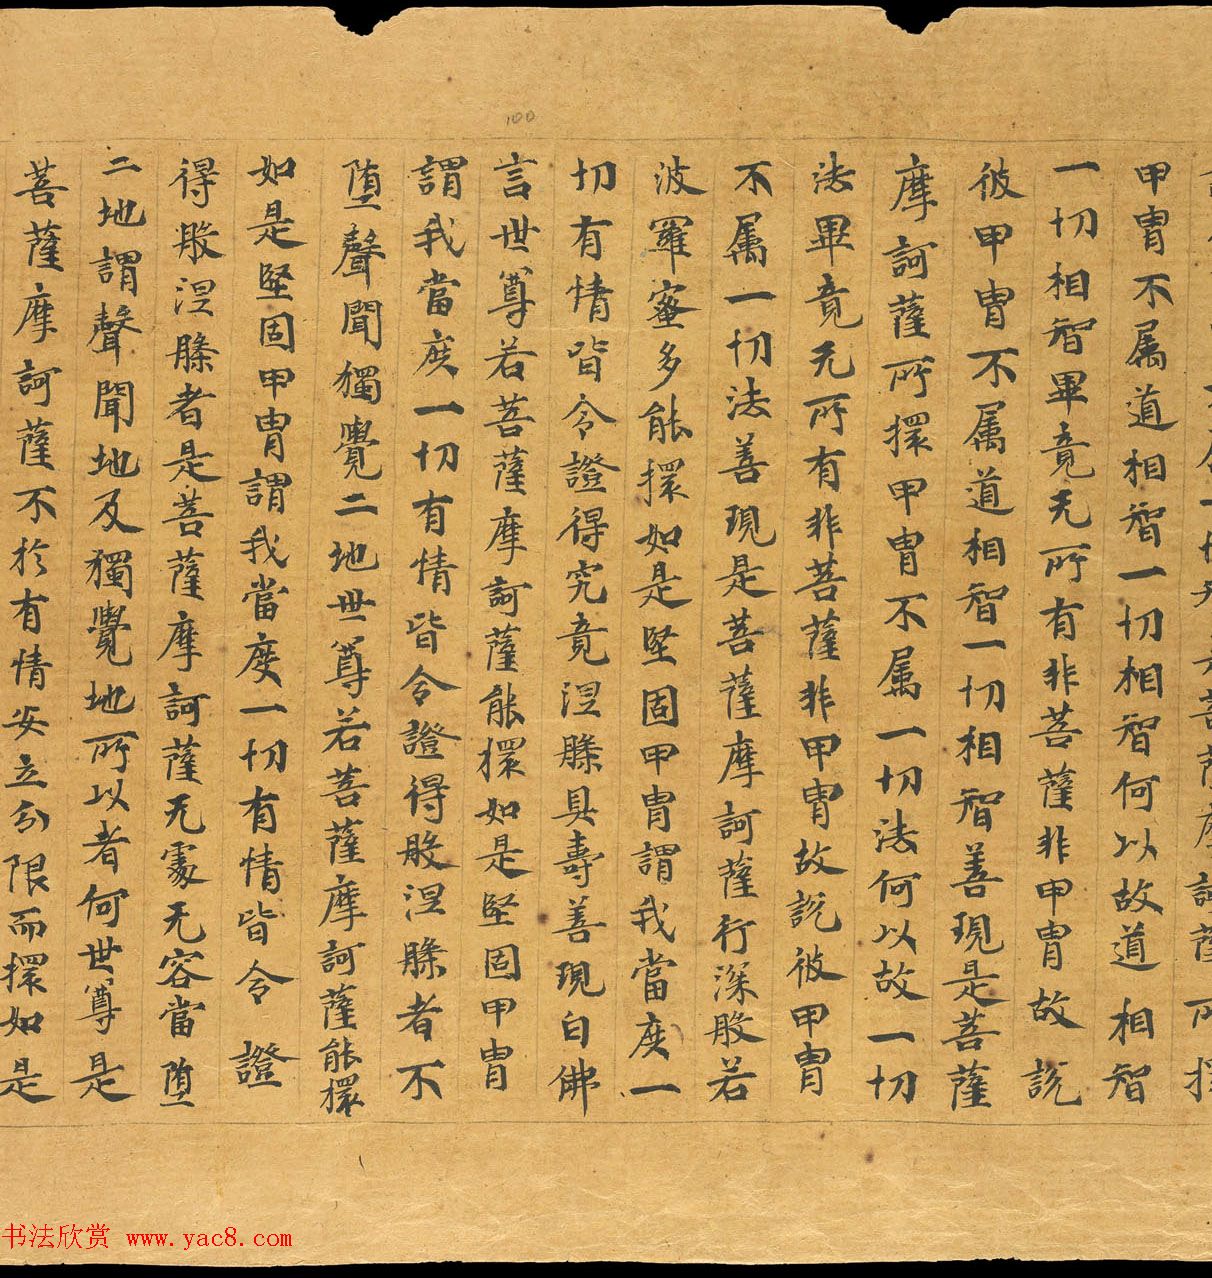 甲冑不属道相智一切相智何以故道相智
一切相智畢竟无所有非菩薩非甲冑故說
彼甲冑不属道相智一切相智善現是菩薩
摩訶薩所擐甲冑不属一切法何以故一切
法畢竟无所有非菩薩非甲冑故說彼甲冑
不属一切法善現是菩薩摩訶薩行深般若
波羅蜜多能擐如是堅固甲冑謂我當度一
切有情皆令證得究竟涅槃具壽善現白佛
言世尊若菩薩摩訶薩能擐如是堅固甲冑
謂我當度一切有情皆令證得般涅槃者不
墮聲聞獨覺二地世尊若菩薩摩訶薩能擐
如是堅固甲冑謂我當度一切有情皆令證
得般涅槃者是菩薩摩訶薩无處无容當墮
二地謂聲聞地及獨覺地所以者何世尊是
菩薩摩訶薩不於有情安立分限而擐如是
100
书法欣赏 www.yac8.com